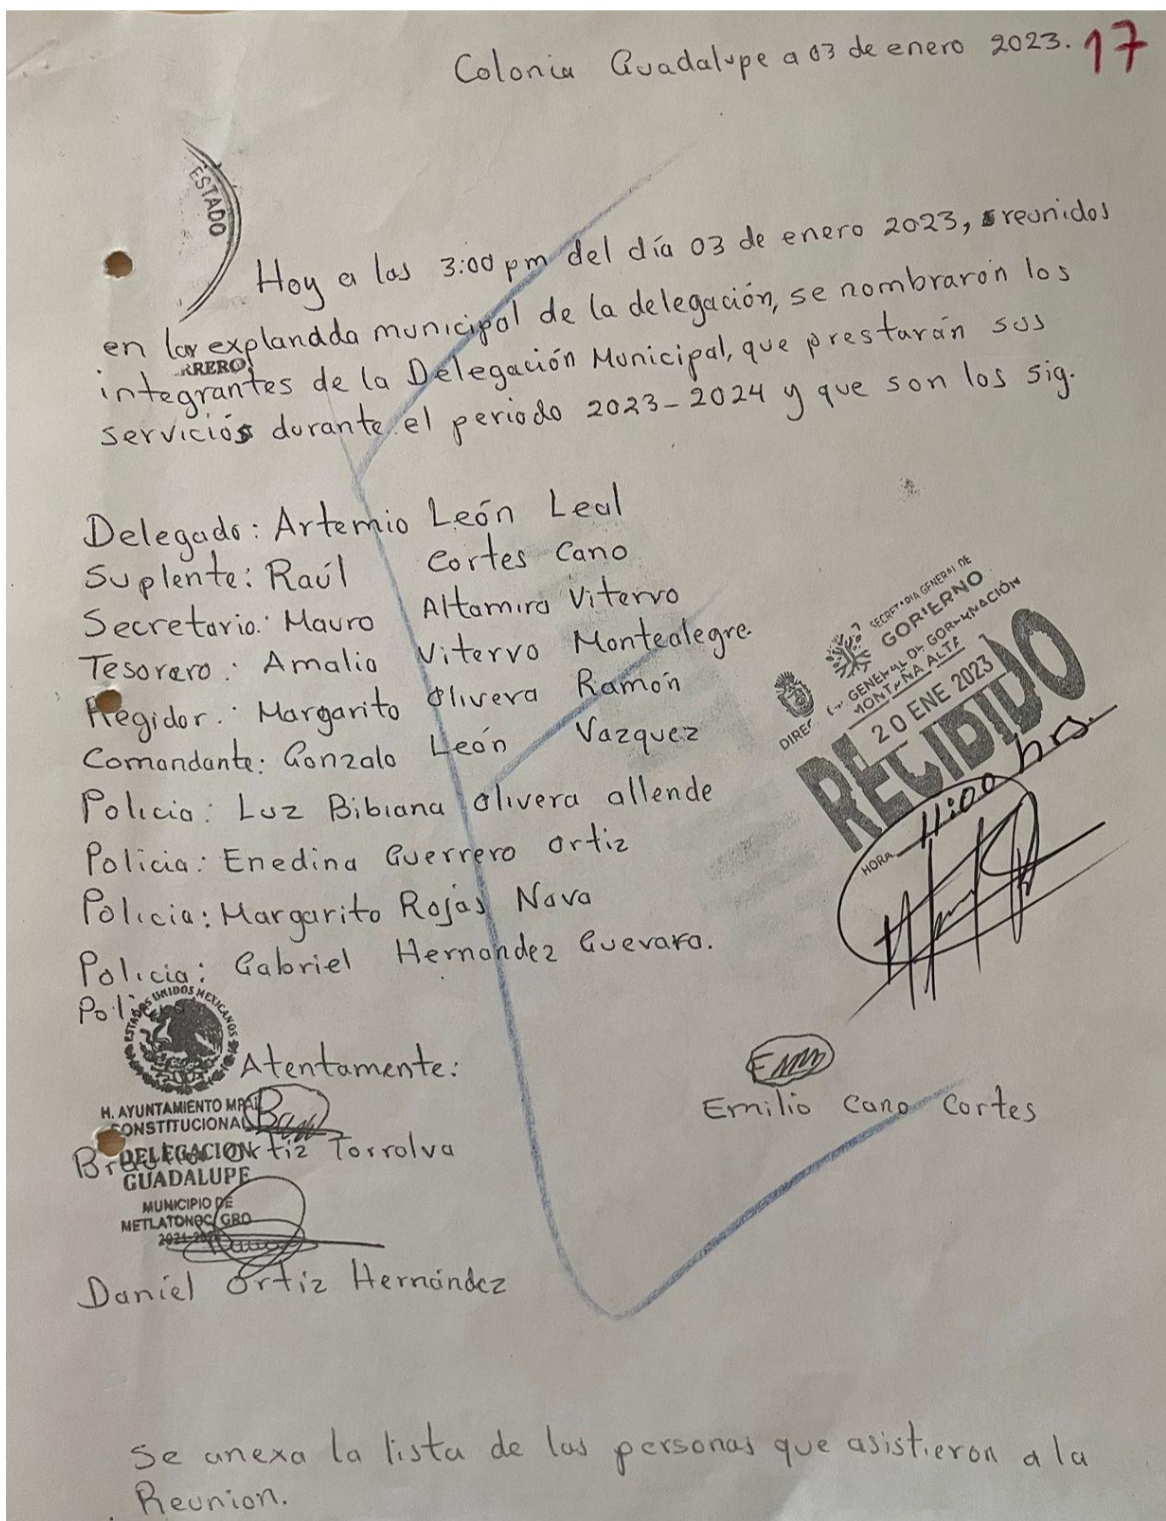 Colonia Guadalupe a 03 de enero 2023. 17
ESTADO
Hoy a las 3:00 pm del día 03 de enero 2023, reunidos
en la explandda municipal de la delegación, se nombrarón los
RRERO
integrantes de la Delegación Municipal, que prestarán sus
servicios durante el periodo 2023-2024 y que son los sig.
Delegado: Artemio León Leal
Suplente: Raúl Cortes Cano
Secretario: Mauro Altamira Vitervo
Tesorero: Amalia Vitervo Montealegre.
Regidor: Margarito Olivera Ramón
Comandante: Gonzalo León Vazquez
Policia: Luz Bibiana Olivera allende
Policia: Enedina Guerrero Ortiz
Policia: Margarito Rojas Nava
Policia: Gabriel Hernandez Guevara.
Poli
SECRETARIA GENERAL DE
GOBIERNO
GENERAL DE GOBERNACIÓN
MONTAÑA ALTA
20 ENE 2023
RECIBIDO
HORA 11:00 hrs.
ESTADOS UNIDOS MEXICANOS
Atentamente:
H. AYUNTAMIENTO MPAL
CONSTITUCIONAL
DELEGACION
GUADALUPE
MUNICIPIO DE
METLATONOC, GRO
Ortiz Torrolva
Emilio Cano Cortes
Daniel Ortiz Hernández
Se anexa la lista de las personas que asistieron a la
Reunion.